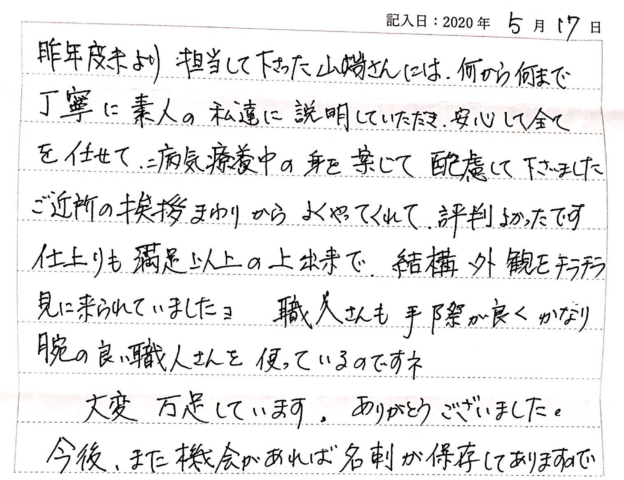 記入日：2020年 5月17日
昨年度末より 担当して下さった山崎さんには、何から何まで
丁寧に 素人の 私達に 説明していただき、安心して全て
を任せて、病気療養中の身を案じて 配慮して下さいました
ご近所の挨拶まわりから よくやってくれて、評判よかったです
仕上りも 満足以上の上出来で、結構 外観をチラチラ
見に来られていましたヨ 職人さんも 手際が良く かなり
腕の良い職人さんを 使っているのですネ
大変 万足しています。ありがとうございました。
今後、また機会があれば 名刺が保存してありますので